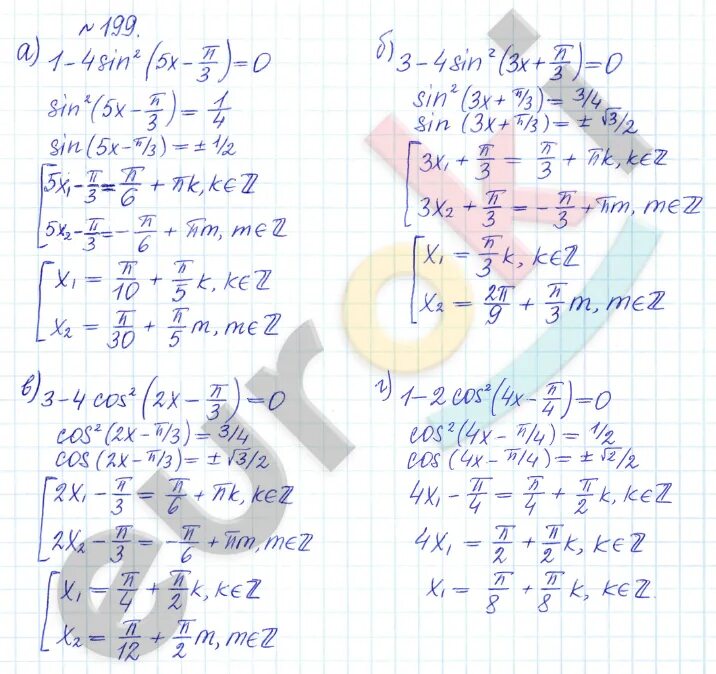 №199.
а) 1-4sin²(5x-π/3)=0
sin²(5x-π/3)=1/4
sin(5x-π/3)=±1/2
[5x₁-π/3=π/6+πk, k∈ℤ
5x₂-π/3=-π/6+πm, m∈ℤ
[x₁=π/10+π/5k, k∈ℤ
x₂=π/30+π/5m, m∈ℤ
б) 3-4sin²(3x+π/3)=0
sin²(3x+π/3)=3/4
sin(3x+π/3)=±√3/2
[3x₁+π/3=π/3+πk, k∈ℤ
3x₂+π/3=-π/3+πm, m∈ℤ
[x₁=π/3k, k∈ℤ
x₂=2π/9+π/3m, m∈ℤ
в) 3-4cos²(2x-π/3)=0
cos²(2x-π/3)=3/4
cos(2x-π/3)=±√3/2
[2x₁-π/3=π/6+πk, k∈ℤ
2x₂-π/3=-π/6+πm, m∈ℤ
[x₁=π/4+π/2k, k∈ℤ
x₂=π/12+π/2m, m∈ℤ
г) 1-2cos²(4x-π/4)=0
cos²(4x-π/4)=1/2
cos(4x-π/4)=±√2/2
4x₁-π/4=π/4+π/2k, k∈ℤ
4x₁=π/2+π/2k, k∈ℤ
x₁=π/8+π/8k, k∈ℤ.
euroki